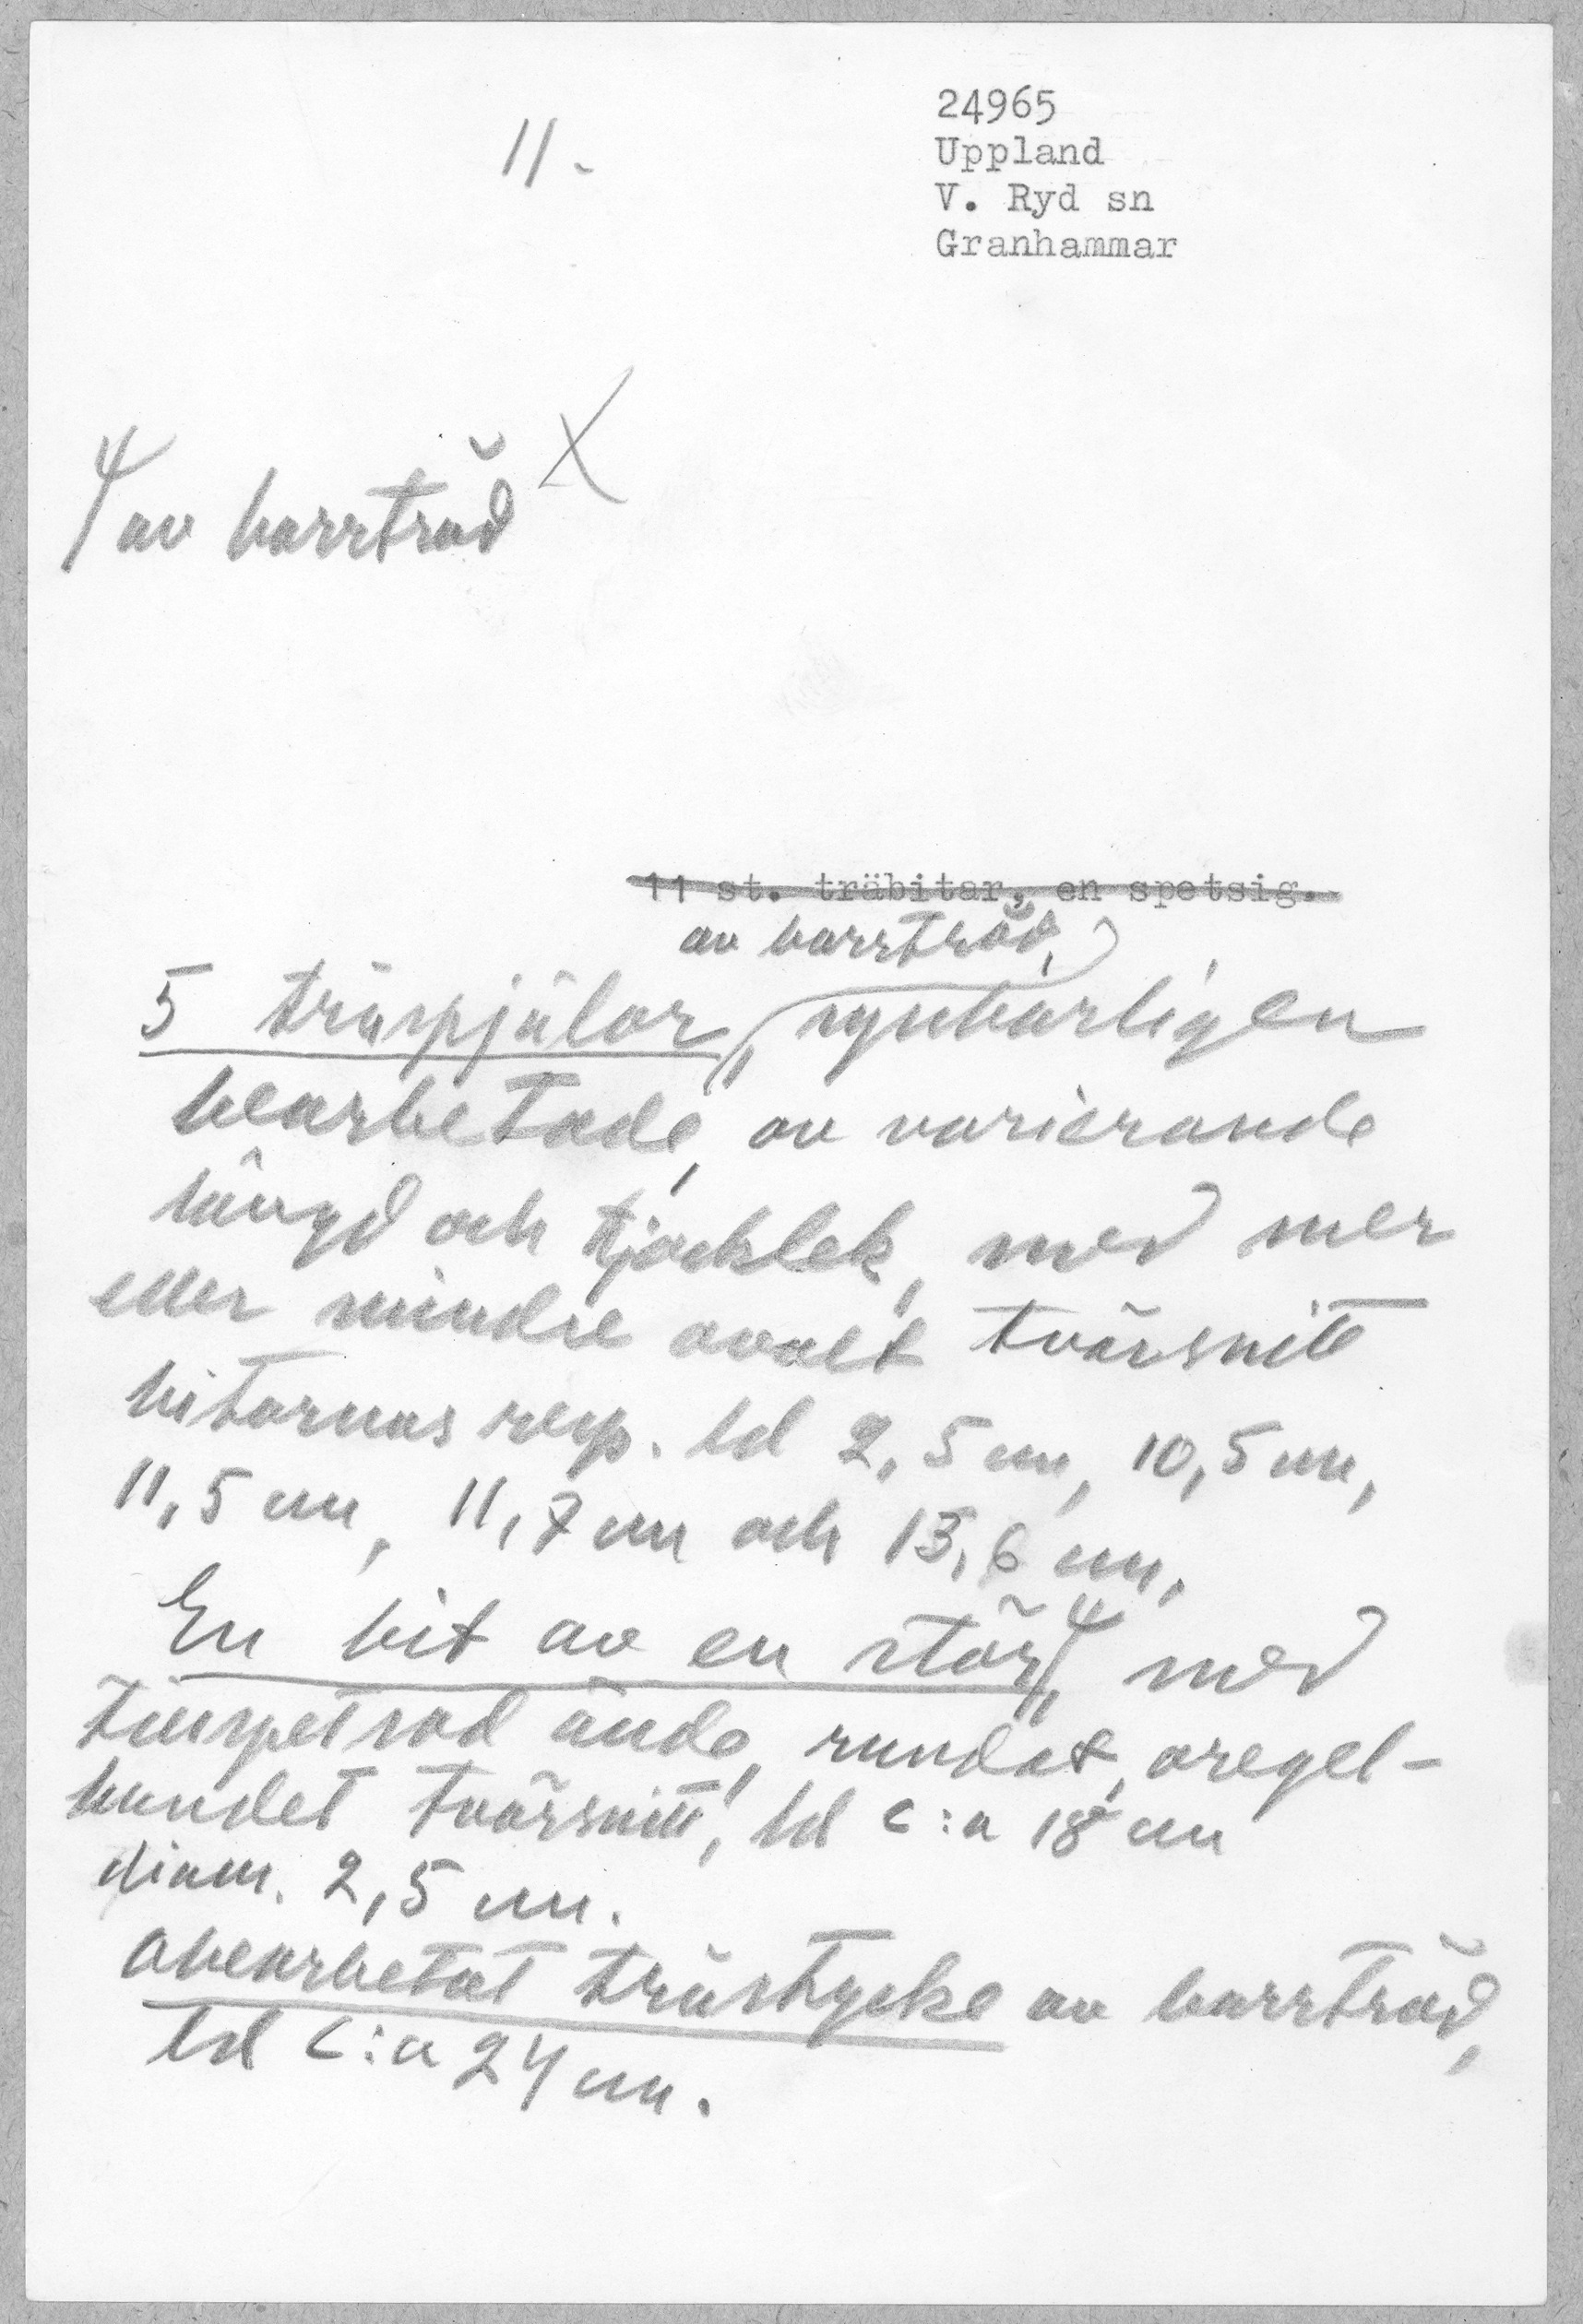 11.
24965
Uppland
V. Ryd sn
Granhammar
X
av barrträd
11 st. träbitar, en spetsig.
av barrträd,
5 träspjälor, synbarligen
bearbetade, av varierande
längd och tjocklek, med mer
eller mindre ovalt tvärsnitt
bitarnas resp. ld 2,5 cm, 10,5 cm,
11,5 cm, 11,7 cm och 13,6 cm.
En bit av en stör, med
tillspetsad ände, rundat, oregel-
bundet tvärsnitt, ld c:a 18 cm
diam. 2,5 cm.
Obearbetat trästycke av barrträd,
ld c:a 24 cm.